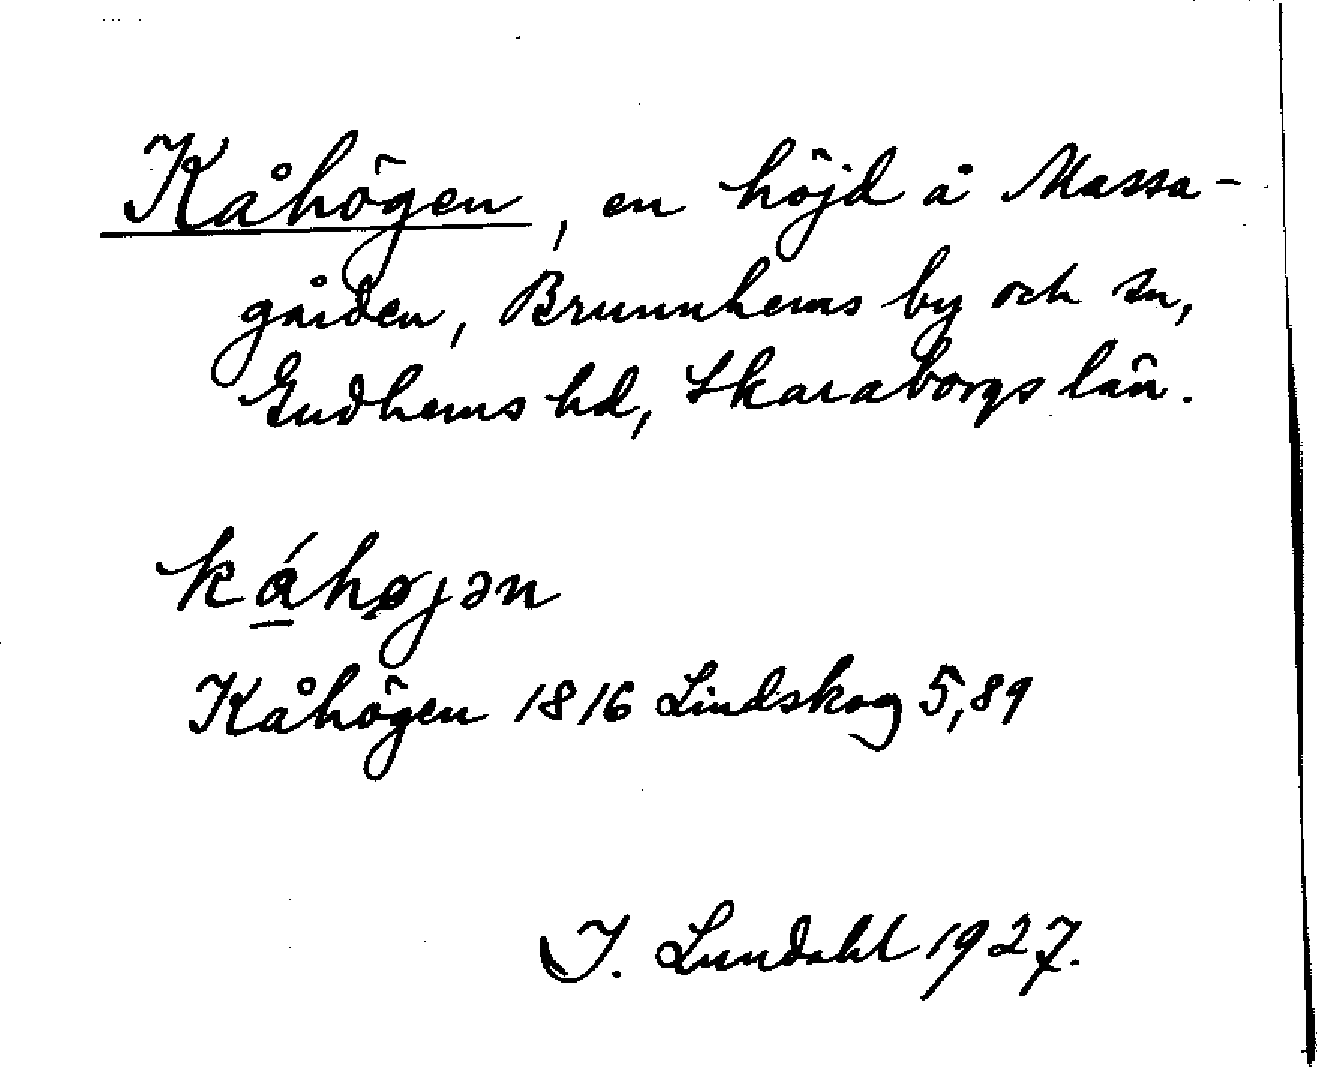 Kåhögen, en höjd å Massa-
gården, Brunnhems by och sn,
Gudhems hd, Skaraborgs län.
ká̱højən
Kåhögen 1816 Lindskog 5,89
I. Lundahl 1927.